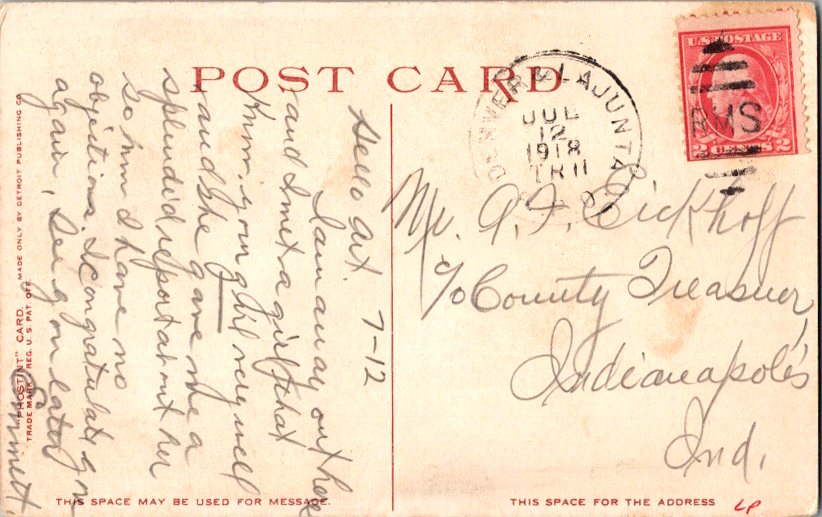 POST CARD
7-12
Hello Art.
I am away out here
and I met a girl that
knew your girl very well
and she gave me a
splendid report about her
so now I have no
objections. I congratulate you
again, See you later
Emmett
THIS SPACE MAY BE USED FOR MESSAGE.
"PHOSTINT" CARD. MADE ONLY BY DETROIT PUBLISHING CO.
TRADE MARK REG. U.S. PAT. OFF.
DENVER & LAJUNTA
JUL
12
1918
TR 11
U.S. POSTAGE
2 2
RMS
Mr. A. F. Eickhoff
c/o County Treasurer,
Indianapolis
Ind.
THIS SPACE FOR THE ADDRESS
LP